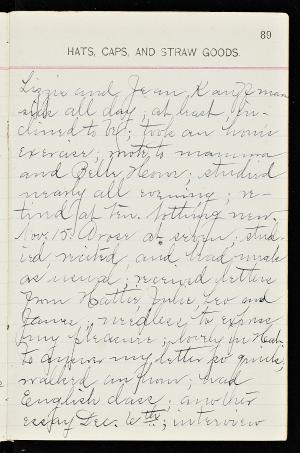 89
HATS, CAPS, AND STRAW GOODS.
Lizzie and Jean
sick all day, at least, in-
clined to be; took an hours
exercise; wrote to mamma
and Belle Horn; studied
nearly all evening; re-
tired at ten. Nothing new.
Nov. 15. Arose at seven; stud-
ied, recited and had music
as usual; received letters
from Hattie, Julie, Leo and
James; needless to express
my pleasure; lovely in Hat.
to answer my letter so quick;
walked an hour; had
English class; another
essay Dec. 6th; interview